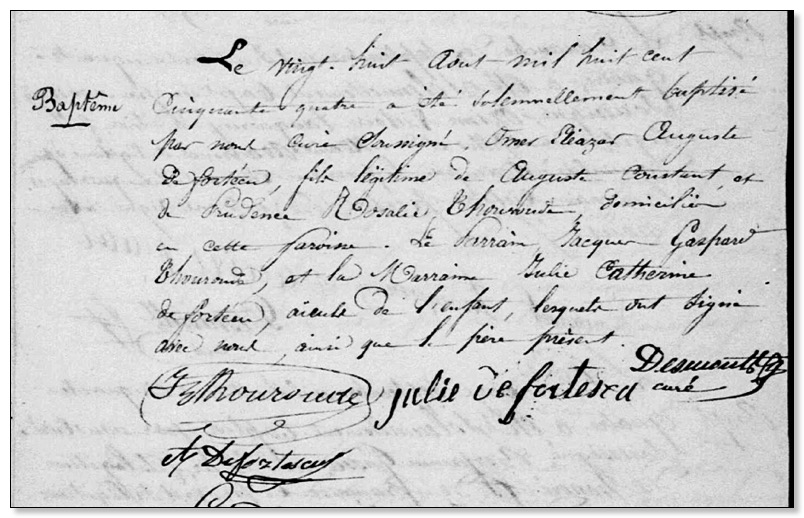 Le vingt-huit Aout mil huit cent
Baptême
Cinquante quatre a été solemnellement baptisé
par nous curé soussigné, Omer Eléazar Auguste
De fortécu, fils légitime de Auguste Constant, et
de Prudence Rosalie Thouroude, domiciliés
en cette Paroisse. Le Parrain, Jacques Gaspard
Thouroude, et la Marraine Julie Catherine
de fortecu, aïeuls de l'enfant, lesquels ont signé
avec nous, ainsi que le père présent.
Thouroude julie De fortescu
curé
A Defortescu